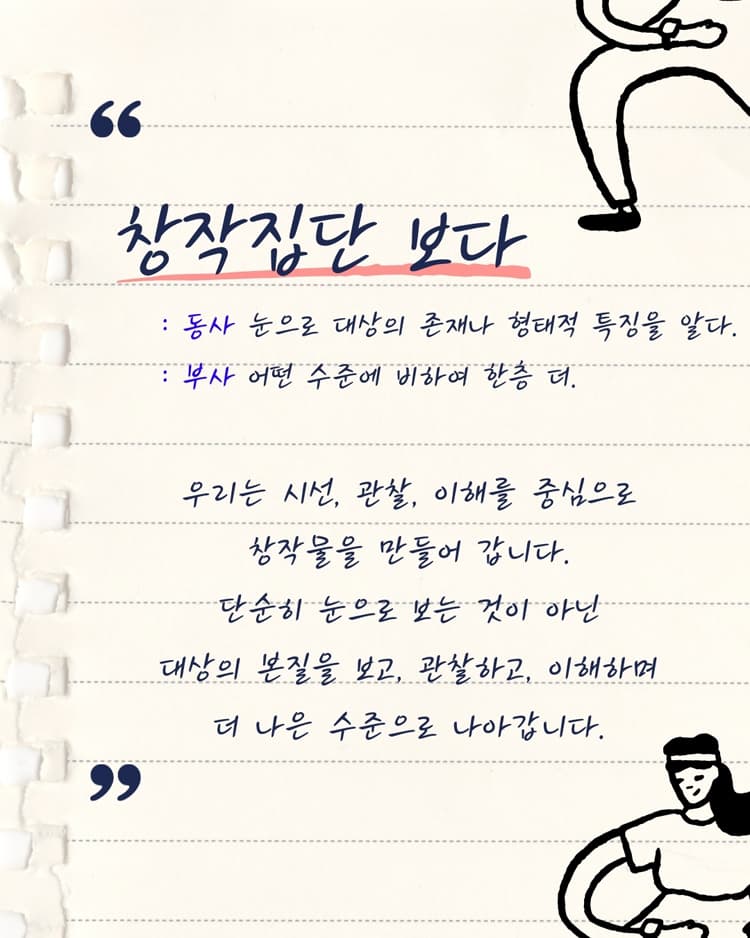 “
창작집단 보다
: 동사 눈으로 대상의 존재나 형태적 특징을 알다.
: 부사 어떤 수준에 비하여 한층 더.
우리는 시선, 관찰, 이해를 중심으로
창작물을 만들어 갑니다.
단순히 눈으로 보는 것이 아닌
대상의 본질을 보고, 관찰하고, 이해하며
더 나은 수준으로 나아갑니다.
”